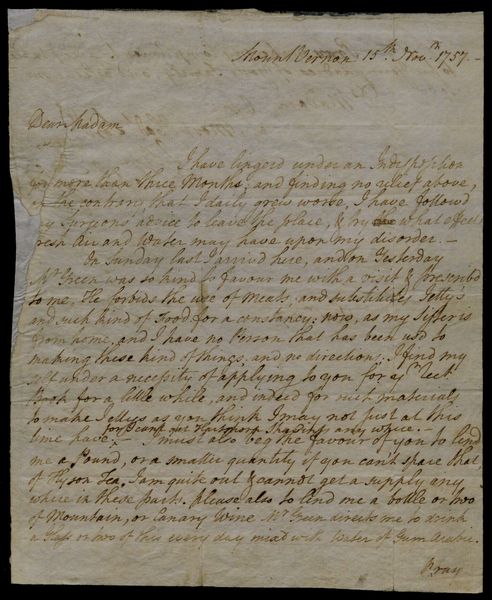 Mount Vernon 15th. Novr. 1757.
Dear Madam
I have lingerd under an Indisposition
for more than three Months; and finding no relief above,
on the contrary that I daily grew worse, I have followd
my Surgeons advice to leave the place, & try what effect
fresh Air and Water may have upon my disorder. —
On Sunday last I arrivd here, and on Yesterday
Mr. Green was so kind to favour me with a visit & prescribd
to me, He forbids the use of Meats, and substitutes Jellys
and such kind of Food for a constancy: now, as my Sister is
from home, and I have no Person that has been usd to
making these kind of things, and no directions; I find my
self under a necessity of applying to you for yr.
Book for a little while, and indeed for such materials
to make Jellys as you think I may not just at this
time have. — for I cant get Hartshorn Shavings any where. — I must also beg the favour of you to lend
me a Pound, or a smaller quantity if you can't spare that,
of Hyson Tea. I am quite out & cannot get a supply any
where in these parts. please also to lend me a bottle or two
of Mountain, or Canary Wine Mr. Green directs me to drink
a Glass or two of this every day mixd with Water of Gum Arabic.
Pray